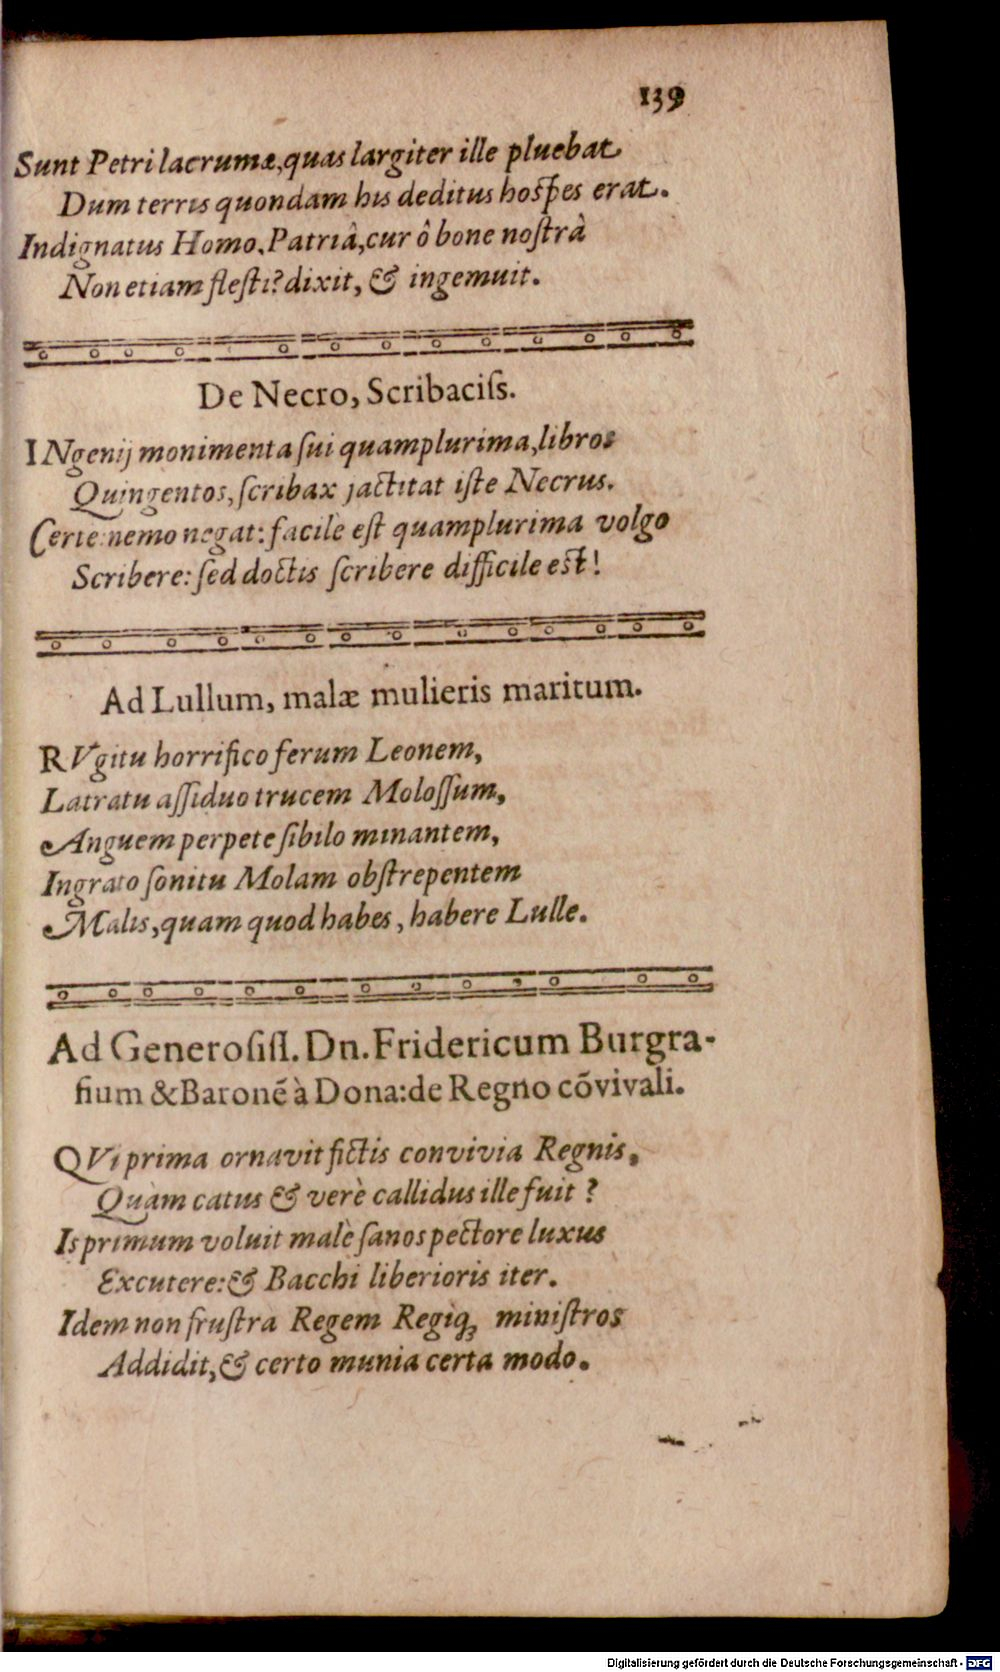 139
Sunt Petri lacrumæ, quas largiter ille pluebat
Dum terris quondam his deditus hoſpes erat.
Indignatus Homo, Patriâ, cur ô bone noſtrâ
Non etiam fleſti? dixit, & ingemuit.
De Necro, Scribaciſs.
INgenij monimenta ſui quamplurima, libros
Quingentos, ſcribax jactitat iſte Necrus.
Certe: nemo negat: facilè eſt quamplurima volgo
Scribere: ſed doctis ſcribere difficile eſt!
Ad Lullum, malæ mulieris maritum.
RVgitu horrifico ferum Leonem,
Latratu aſſiduo trucem Moloſſum,
Anguem perpete ſibilo minantem,
Ingrato ſonitu Molam obſtrepentem
Malis, quam quod habes, habere Lulle.
Ad Generoſiſſ. Dn. Fridericum Burgra-
fium & Baronẽ à Dona: de Regno cõvivali.
QVi prima ornavit fictis convivia Regnis,
Quàm catus & verè callidus ille fuit?
Is primum voluit malè ſanos pectore luxus
Excutere: & Bacchi liberioris iter.
Idem non fruſtra Regem Regiq́; miniſtros
Addidit, & certo munia certa modo.
Digitalisierung gefördert durch die Deutsche Forschungsgemeinschaft - DFG